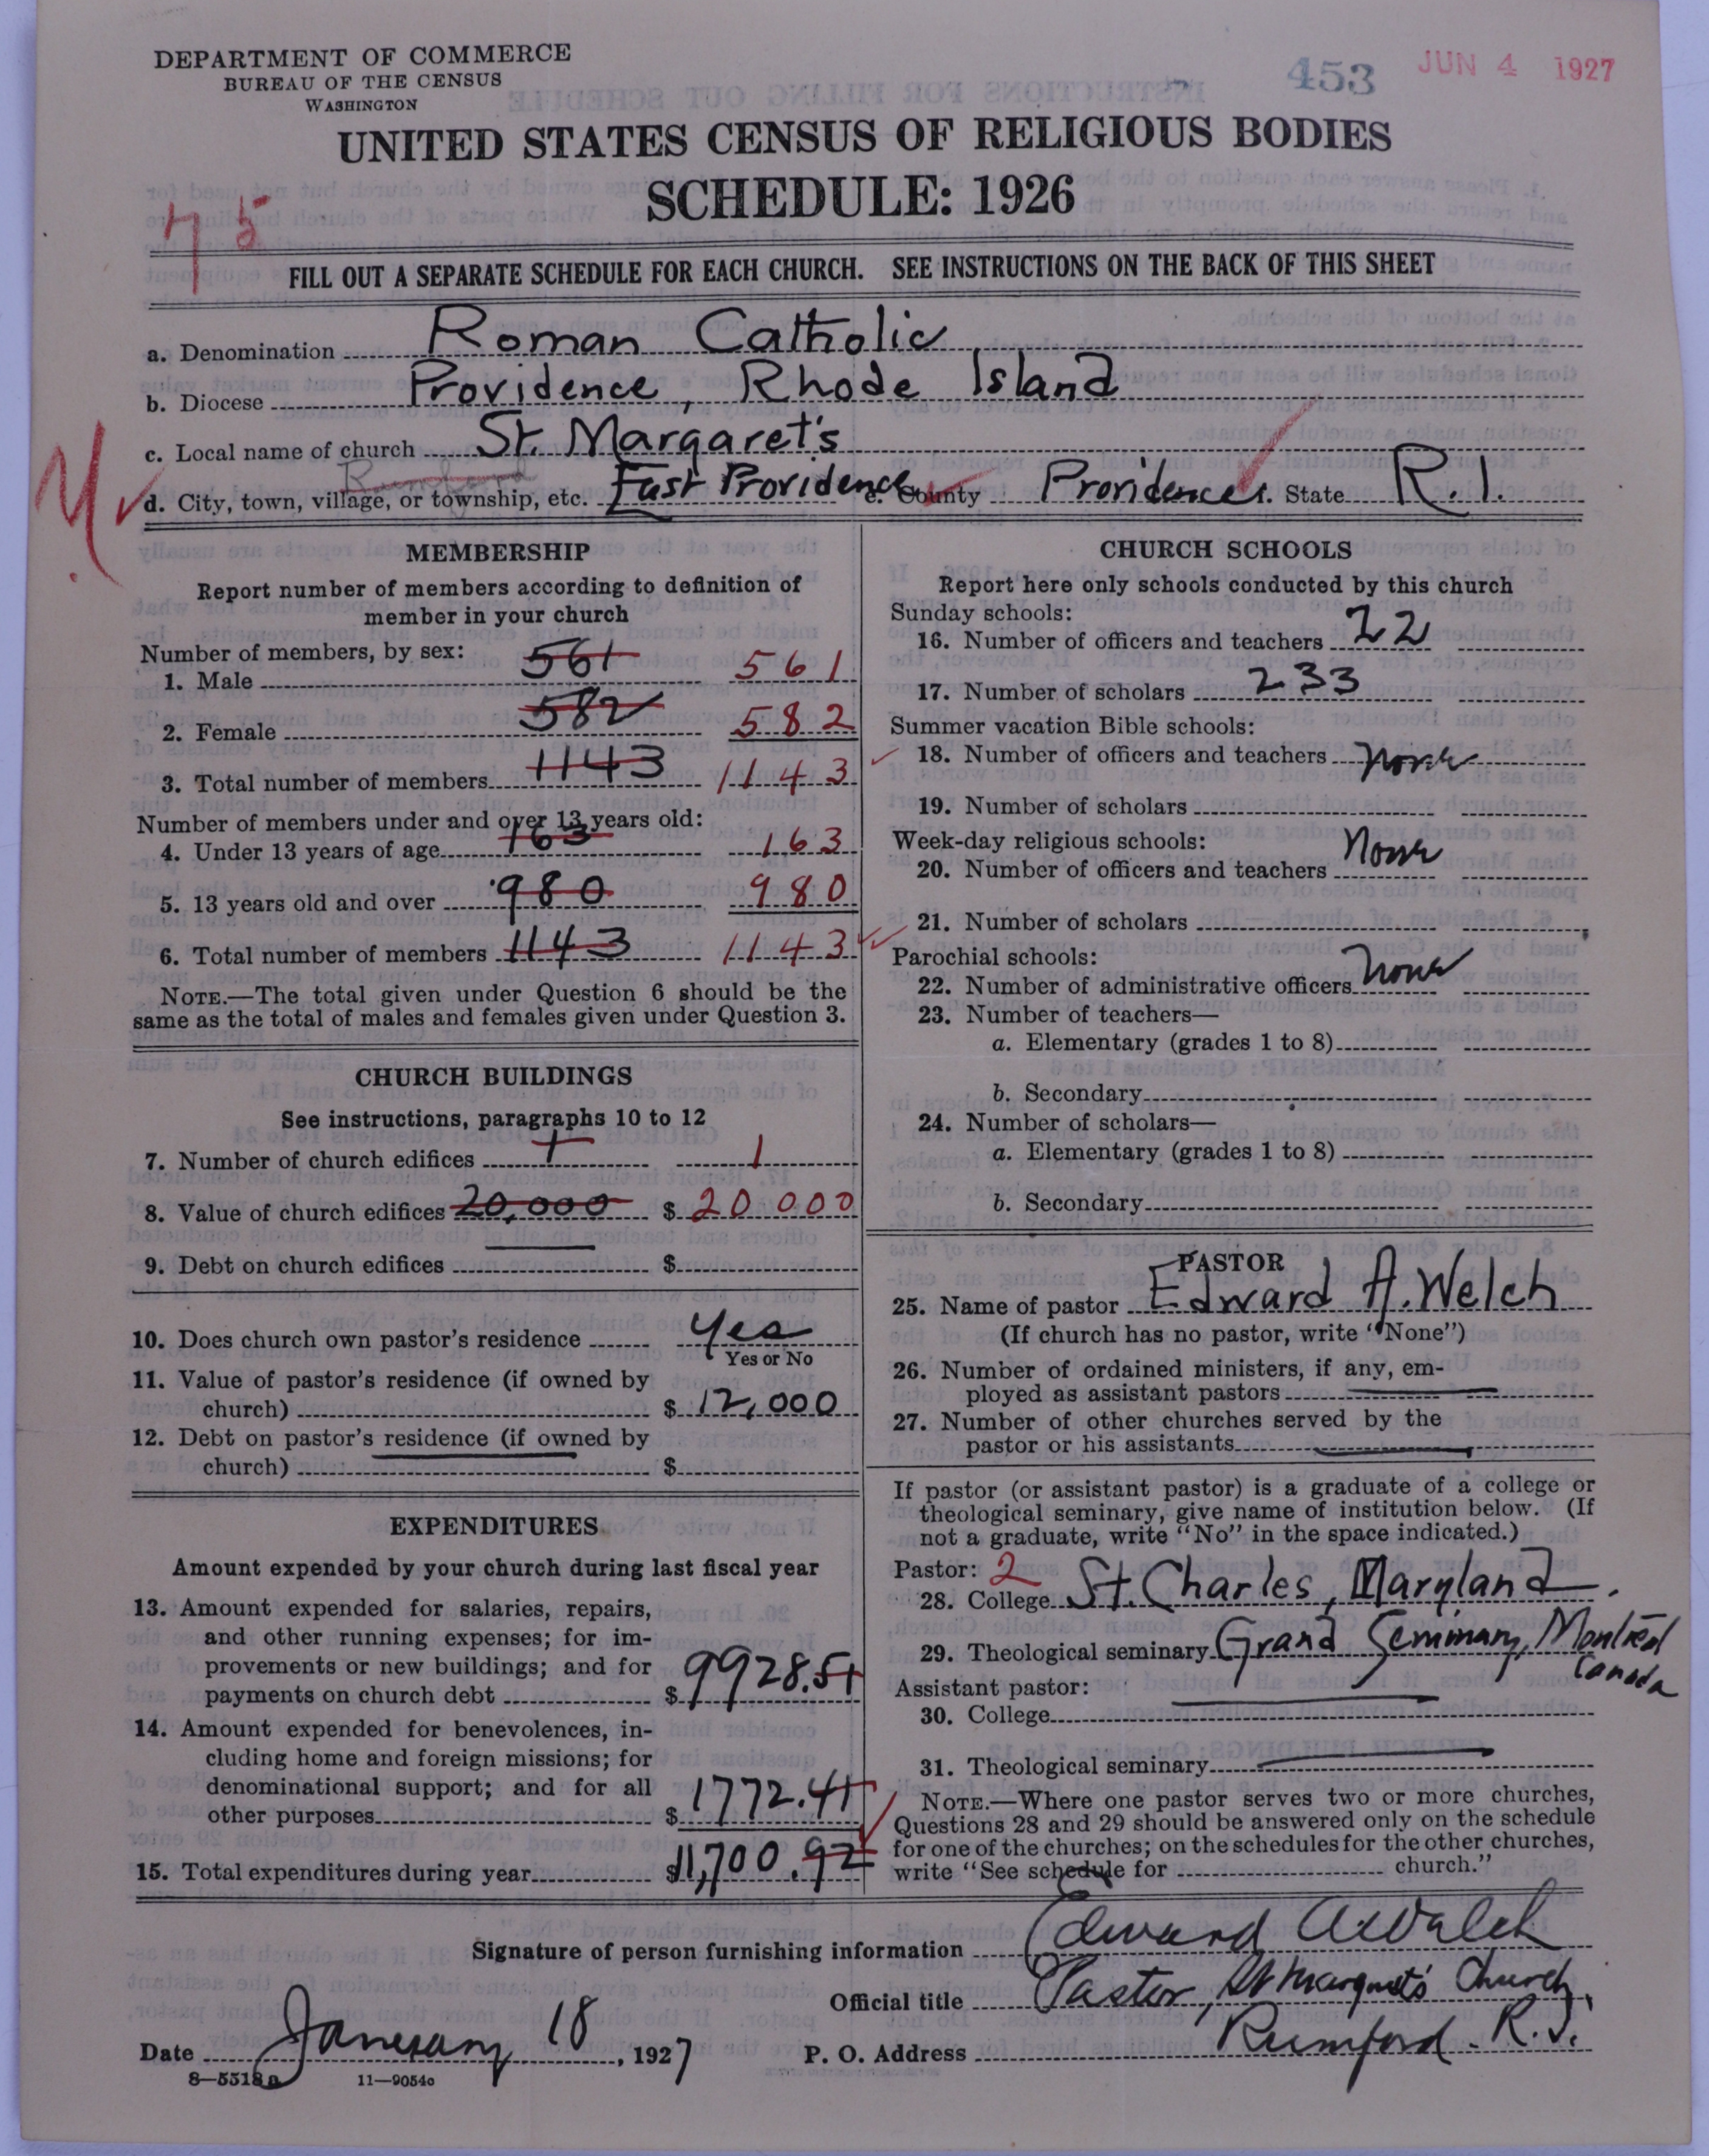 DEPARTMENT OF COMMERCE
BUREAU OF THE CENSUS
WASHINGTON
453 JUN 4 1927
UNITED STATES CENSUS OF RELIGIOUS BODIES
SCHEDULE: 1926
FILL OUT A SEPARATE SCHEDULE FOR EACH CHURCH. SEE INSTRUCTIONS ON THE BACK OF THIS SHEET
a. Denomination Roman Catholic
b. Diocese Providence, Rhode Island
c. Local name of church St. Margaret's
Rumford
d. City, town, village, or township, etc. East Providence e. County Providence f. State R.I.
MEMBERSHIP
Report number of members according to definition of
member in your church
Number of members, by sex:
1. Male 561 561
2. Female 582 582
3. Total number of members 1143 1143
Number of members under and over 13 years old:
4. Under 13 years of age 163 163
5. 13 years old and over 980 980
6. Total number of members 1143 1143
NOTE.—The total given under Question 6 should be the
same as the total of males and females given under Question 3.
CHURCH BUILDINGS
See instructions, paragraphs 10 to 12
7. Number of church edifices 1 1
8. Value of church edifices 20,000 $ 20 000
9. Debt on church edifices $
10. Does church own pastor's residence Yes
Yes or No
11. Value of pastor's residence (if owned by
church) $ 12,000
12. Debt on pastor's residence (if owned by
church) $
EXPENDITURES
Amount expended by your church during last fiscal year
13. Amount expended for salaries, repairs,
and other running expenses; for im-
provements or new buildings; and for
payments on church debt $ 9928.51
14. Amount expended for benevolences, in-
cluding home and foreign missions; for
denominational support; and for all
other purposes $ 1772.41
15. Total expenditures during year $11,700.92
CHURCH SCHOOLS
Report here only schools conducted by this church
Sunday schools:
16. Number of officers and teachers 22
17. Number of scholars 233
Summer vacation Bible schools:
18. Number of officers and teachers None
19. Number of scholars
Week-day religious schools:
20. Number of officers and teachers None
21. Number of scholars
Parochial schools:
22. Number of administrative officers None
23. Number of teachers—
a. Elementary (grades 1 to 8)
b. Secondary
24. Number of scholars—
a. Elementary (grades 1 to 8)
b. Secondary
PASTOR
25. Name of pastor Edward A. Welch
(If church has no pastor, write "None")
26. Number of ordained ministers, if any, em-
ployed as assistant pastors
27. Number of other churches served by the
pastor or his assistants
If pastor (or assistant pastor) is a graduate of a college or
theological seminary, give name of institution below. (If
not a graduate, write "No" in the space indicated.)
Pastor: 2
28. College St. Charles, Maryland.
29. Theological seminary Grand Seminary, Montreal
Canada
Assistant pastor:
30. College
31. Theological seminary
NOTE.—Where one pastor serves two or more churches,
Questions 28 and 29 should be answered only on the schedule
for one of the churches; on the schedules for the other churches,
write "See schedule for church."
Signature of person furnishing information Edward A Welch
Official title Pastor, St Margaret's Church,
Date January 18, 1927 P. O. Address Rumford. R.I.
8—5518a 11—9054o